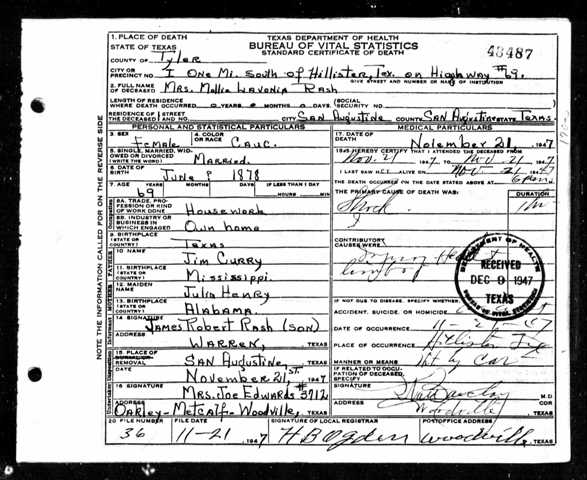 1. PLACE OF DEATH
STATE OF TEXAS
TEXAS DEPARTMENT OF HEALTH
BUREAU OF VITAL STATISTICS
STANDARD CERTIFICATE OF DEATH
COUNTY OF Tyler
CITY OR PRECINCT NO. 1 One Mi. South of Hillister, Tex. on Highway #69.
GIVE STREET AND NUMBER OR NAME OF INSTITUTION
2. FULL NAME OF DECEASED Mrs. Mollie Lavonia Rash
LENGTH OF RESIDENCE WHERE DEATH OCCURRED
SOCIAL SECURITY NO.
RESIDENCE OF THE DECEASED STREET AND NO. CITY San Augustine COUNTY San Augustine STATE Texas.
PERSONAL AND STATISTICAL PARTICULARS
MEDICAL PARTICULARS
3. SEX Female
4. COLOR OR RACE Cauc.
17. DATE OF DEATH November 21, 1947
5. SINGLE, MARRIED, WIDOWED OR DIVORCED (WRITE) Married.
18. I HEREBY CERTIFY THAT I ATTENDED THE DECEASED FROM
Nov. 21 1947 TO Nov. 21 1947
6. DATE OF BIRTH June 9 1878
I LAST SAW HER ALIVE ON Nov. 21 1947
THE DEATH OCCURRED ON THE DATE STATED ABOVE AT
7. AGE 69 YEARS MONTHS DAYS IF LESS THAN 1 DAY HOURS MIN
THE PRIMARY CAUSE OF DEATH WAS: DURATION
Shock
8A. TRADE, PROFESSION OR KIND OF WORK DONE Housework
8B. INDUSTRY OR BUSINESS IN WHICH ENGAGED Own home
9. BIRTHPLACE (STATE OR COUNTRY) Texas
CONTRIBUTORY CAUSES WERE
10. NAME Jim Curry
11. BIRTHPLACE (STATE OR COUNTRY) Mississippi.
DEPARTMENT OF HEALTH
RECEIVED
DEC 9 1947
TEXAS
BUREAU OF VITAL STATISTICS
12. MAIDEN NAME Julia Henry
13. BIRTHPLACE (STATE OR COUNTRY) Alabama.
IF NOT DUE TO DISEASE, SPECIFY WHETHER:
ACCIDENT, SUICIDE, OR HOMICIDE
14. SIGNATURE James Robert Rash (son)
DATE OF OCCURRENCE
ADDRESS Warren, TEXAS
PLACE OF OCCURRENCE Hillister Tex
15. PLACE OF BURIAL OR REMOVAL San Augustine, TEXAS
MANNER OR MEANS Hit by Car
DATE November 21, st. 1947
IF RELATED TO OCCUPATION OF DECEASED, SPECIFY
16. SIGNATURE Mrs. Joe Edwards #3712
SIGNATURE M.D.
ADDRESS Oakley-Metcalf- Woodville, TEXAS
Woodville TEXAS
20. FILE NUMBER 36
11-21 1947
SIGNATURE OF LOCAL REGISTRAR H B Ogden
POSTOFFICE ADDRESS Woodville, TEXAS
NOTE THE INFORMATION CALLED FOR ON THE REVERSE SIDE